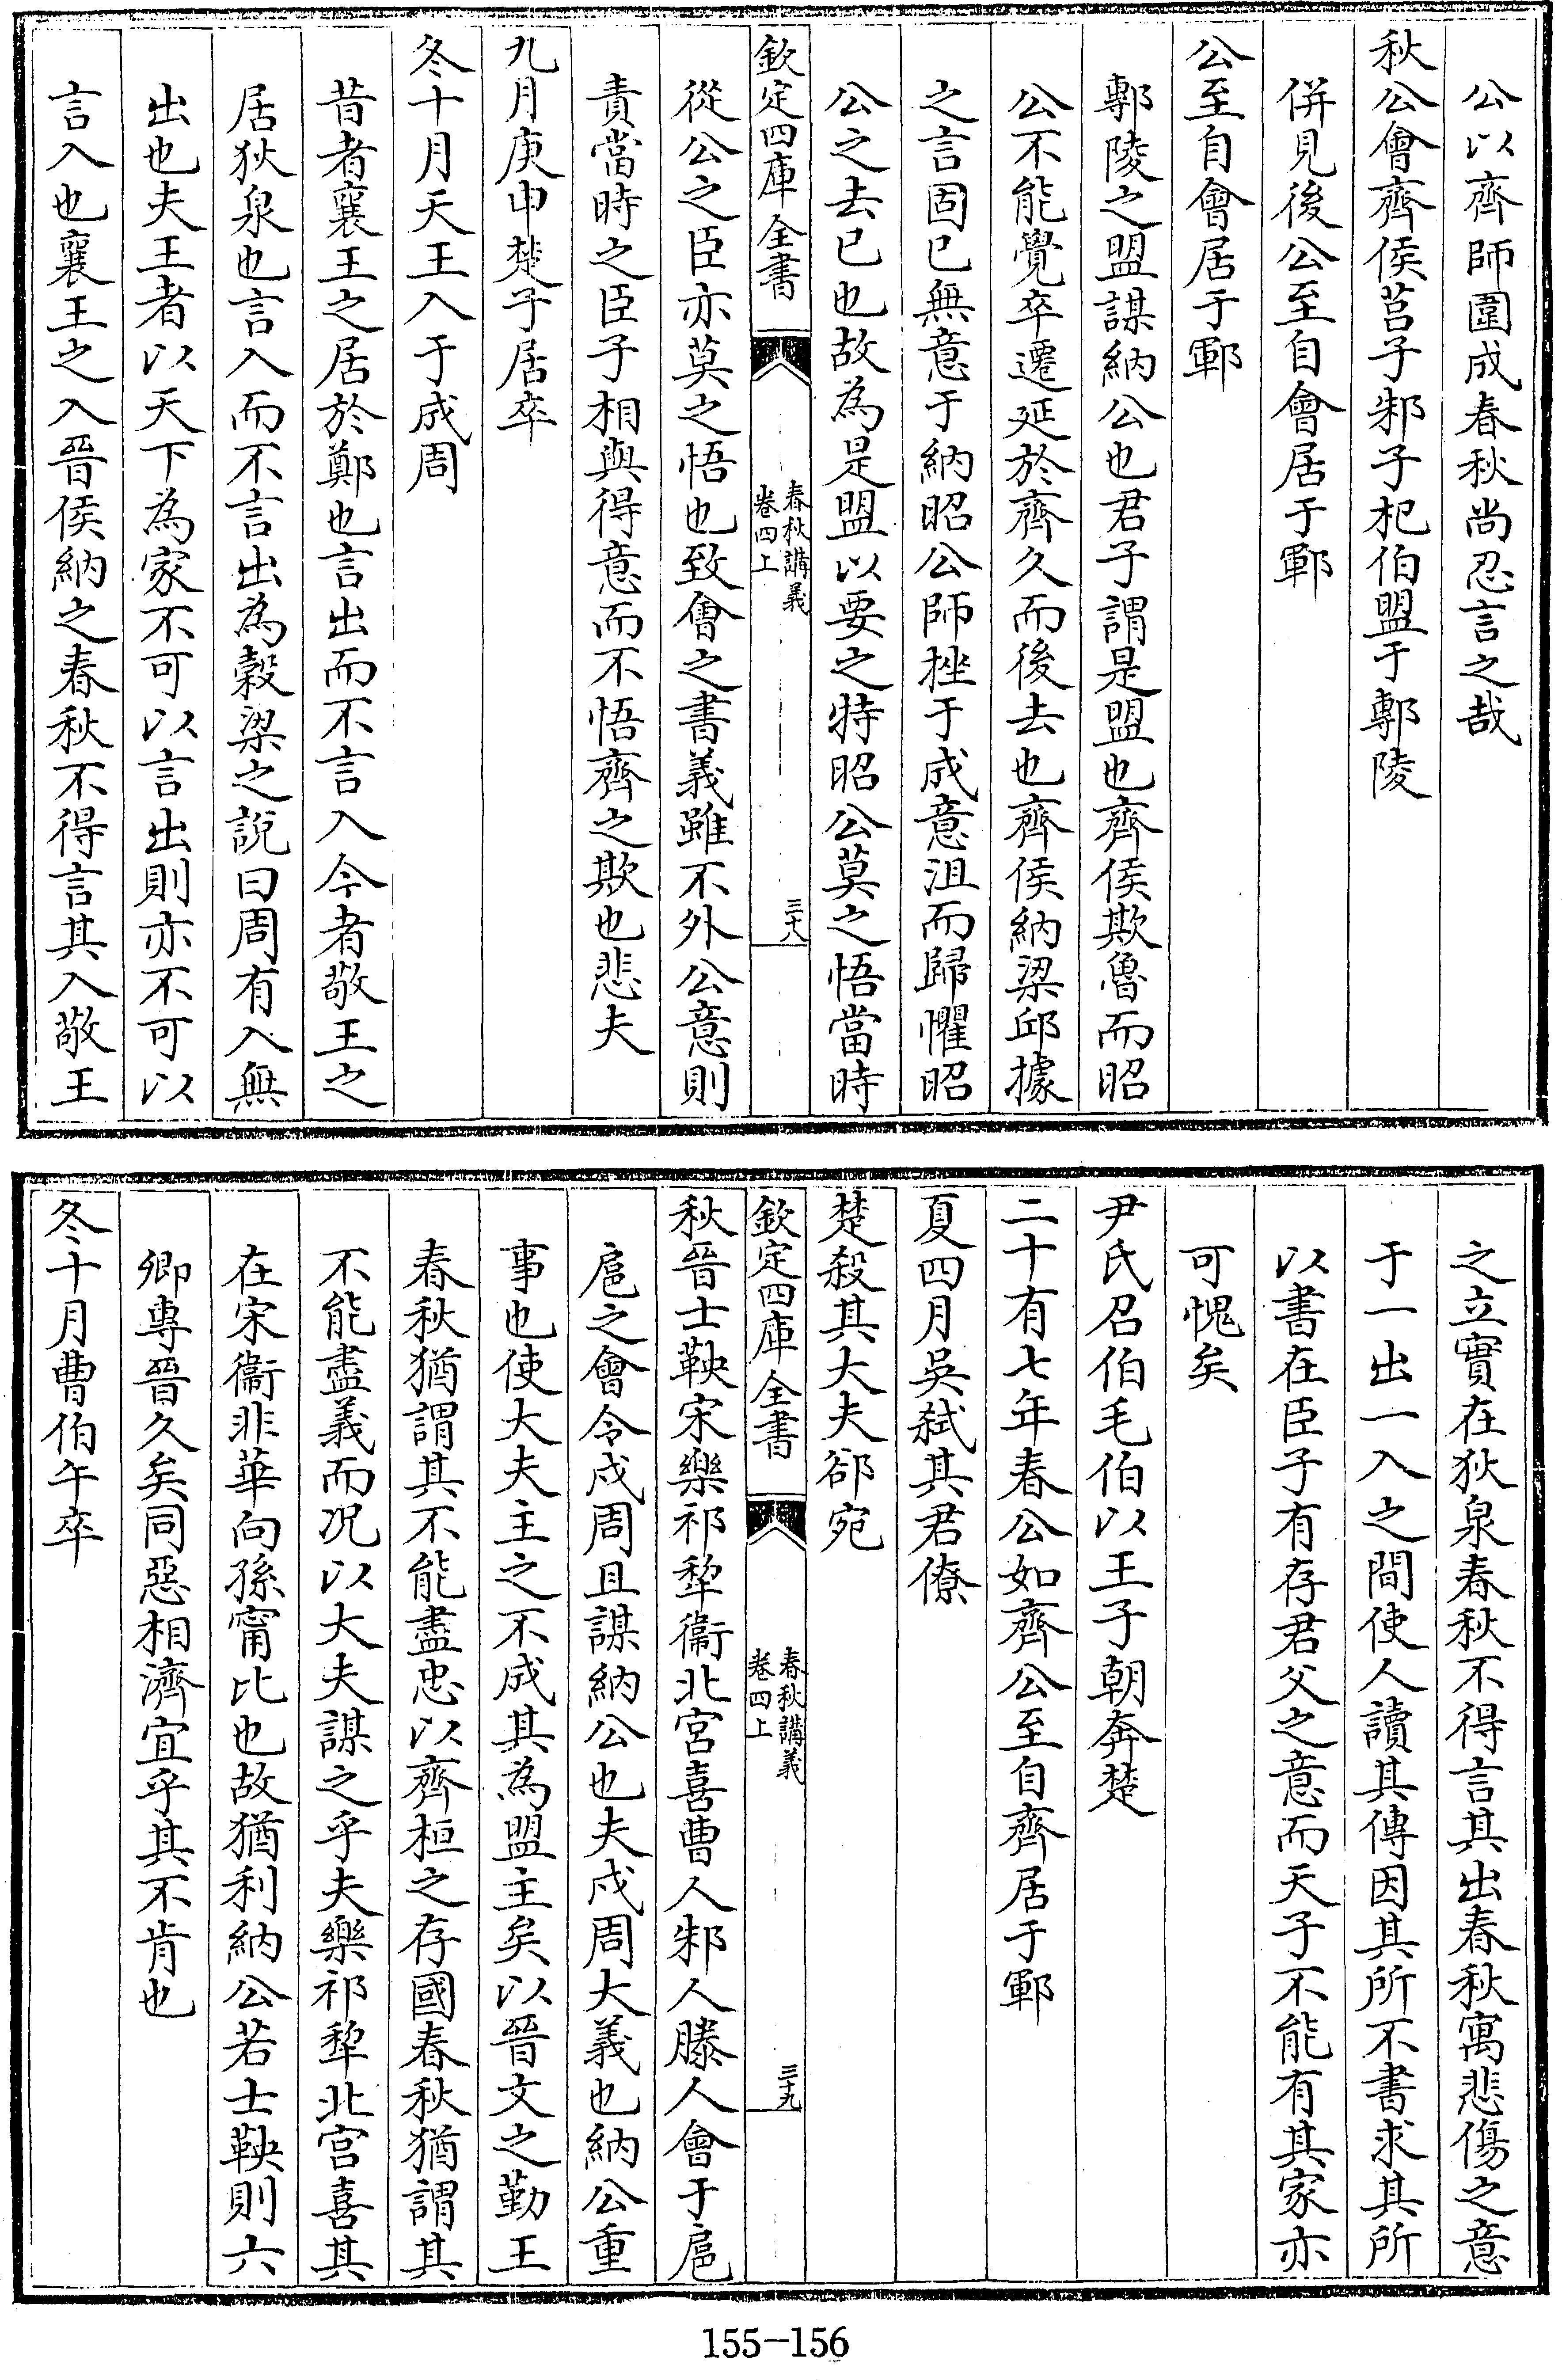 公以齊師圍成春秋尚忍言之哉
秋公會齊侯莒子邾子杞伯盟于鄟陵
併見後公至自會居于鄆
公至自會居于鄆
鄟陵之盟謀納公也君子謂是盟也齊侯欺魯而昭
公不能覺卒遷延於齊久而後去也齊侯納梁邱據
之言固已無意于納昭公師挫于成意沮而歸懼昭
公之去已也故為是盟以要之特昭公莫之悟當時
欽定四庫全書
春秋講義
卷四上
三十八
從公之臣亦莫之悟也致會之書義雖不外公意則
責當時之臣子相與得意而不悟齊之欺也悲夫
九月庚申楚子居卒
冬十月天王入于成周
昔者襄王之居於鄭也言出而不言入今者敬王之
居狄泉也言入而不言出為穀梁之說曰周有入無
出也夫王者以天下為家不可以言出則亦不可以
言入也襄王之入晉侯納之春秋不得言其入敬王
之立實在狄泉春秋不得言其出春秋寓悲傷之意
于一出一入之間使人讀其傳因其所不書求其所
以書在臣子有存君父之意而天子不能有其家亦
可愧矣
尹氏召伯毛伯以王子朝奔楚
二十有七年春公如齊公至自齊居于鄆
夏四月吳弑其君僚
楚殺其大夫郤宛
欽定四庫全書
春秋講義
卷四上
三十九
秋晉士鞅宋樂祁犂衞北宮喜曹人邾人滕人會于扈
扈之會令戍周且謀納公也夫戍周大義也納公重
事也使大夫主之不成其為盟主矣以晉文之勤王
春秋猶謂其不能盡忠以齊桓之存國春秋猶謂其
不能盡義而况以大夫謀之乎夫樂祁犂北宮喜其
在宋衞非華向孫甯比也故猶利納公若士鞅則六
卿專晉久矣同惡相濟宜乎其不肯也
冬十月曹伯午卒
155-156